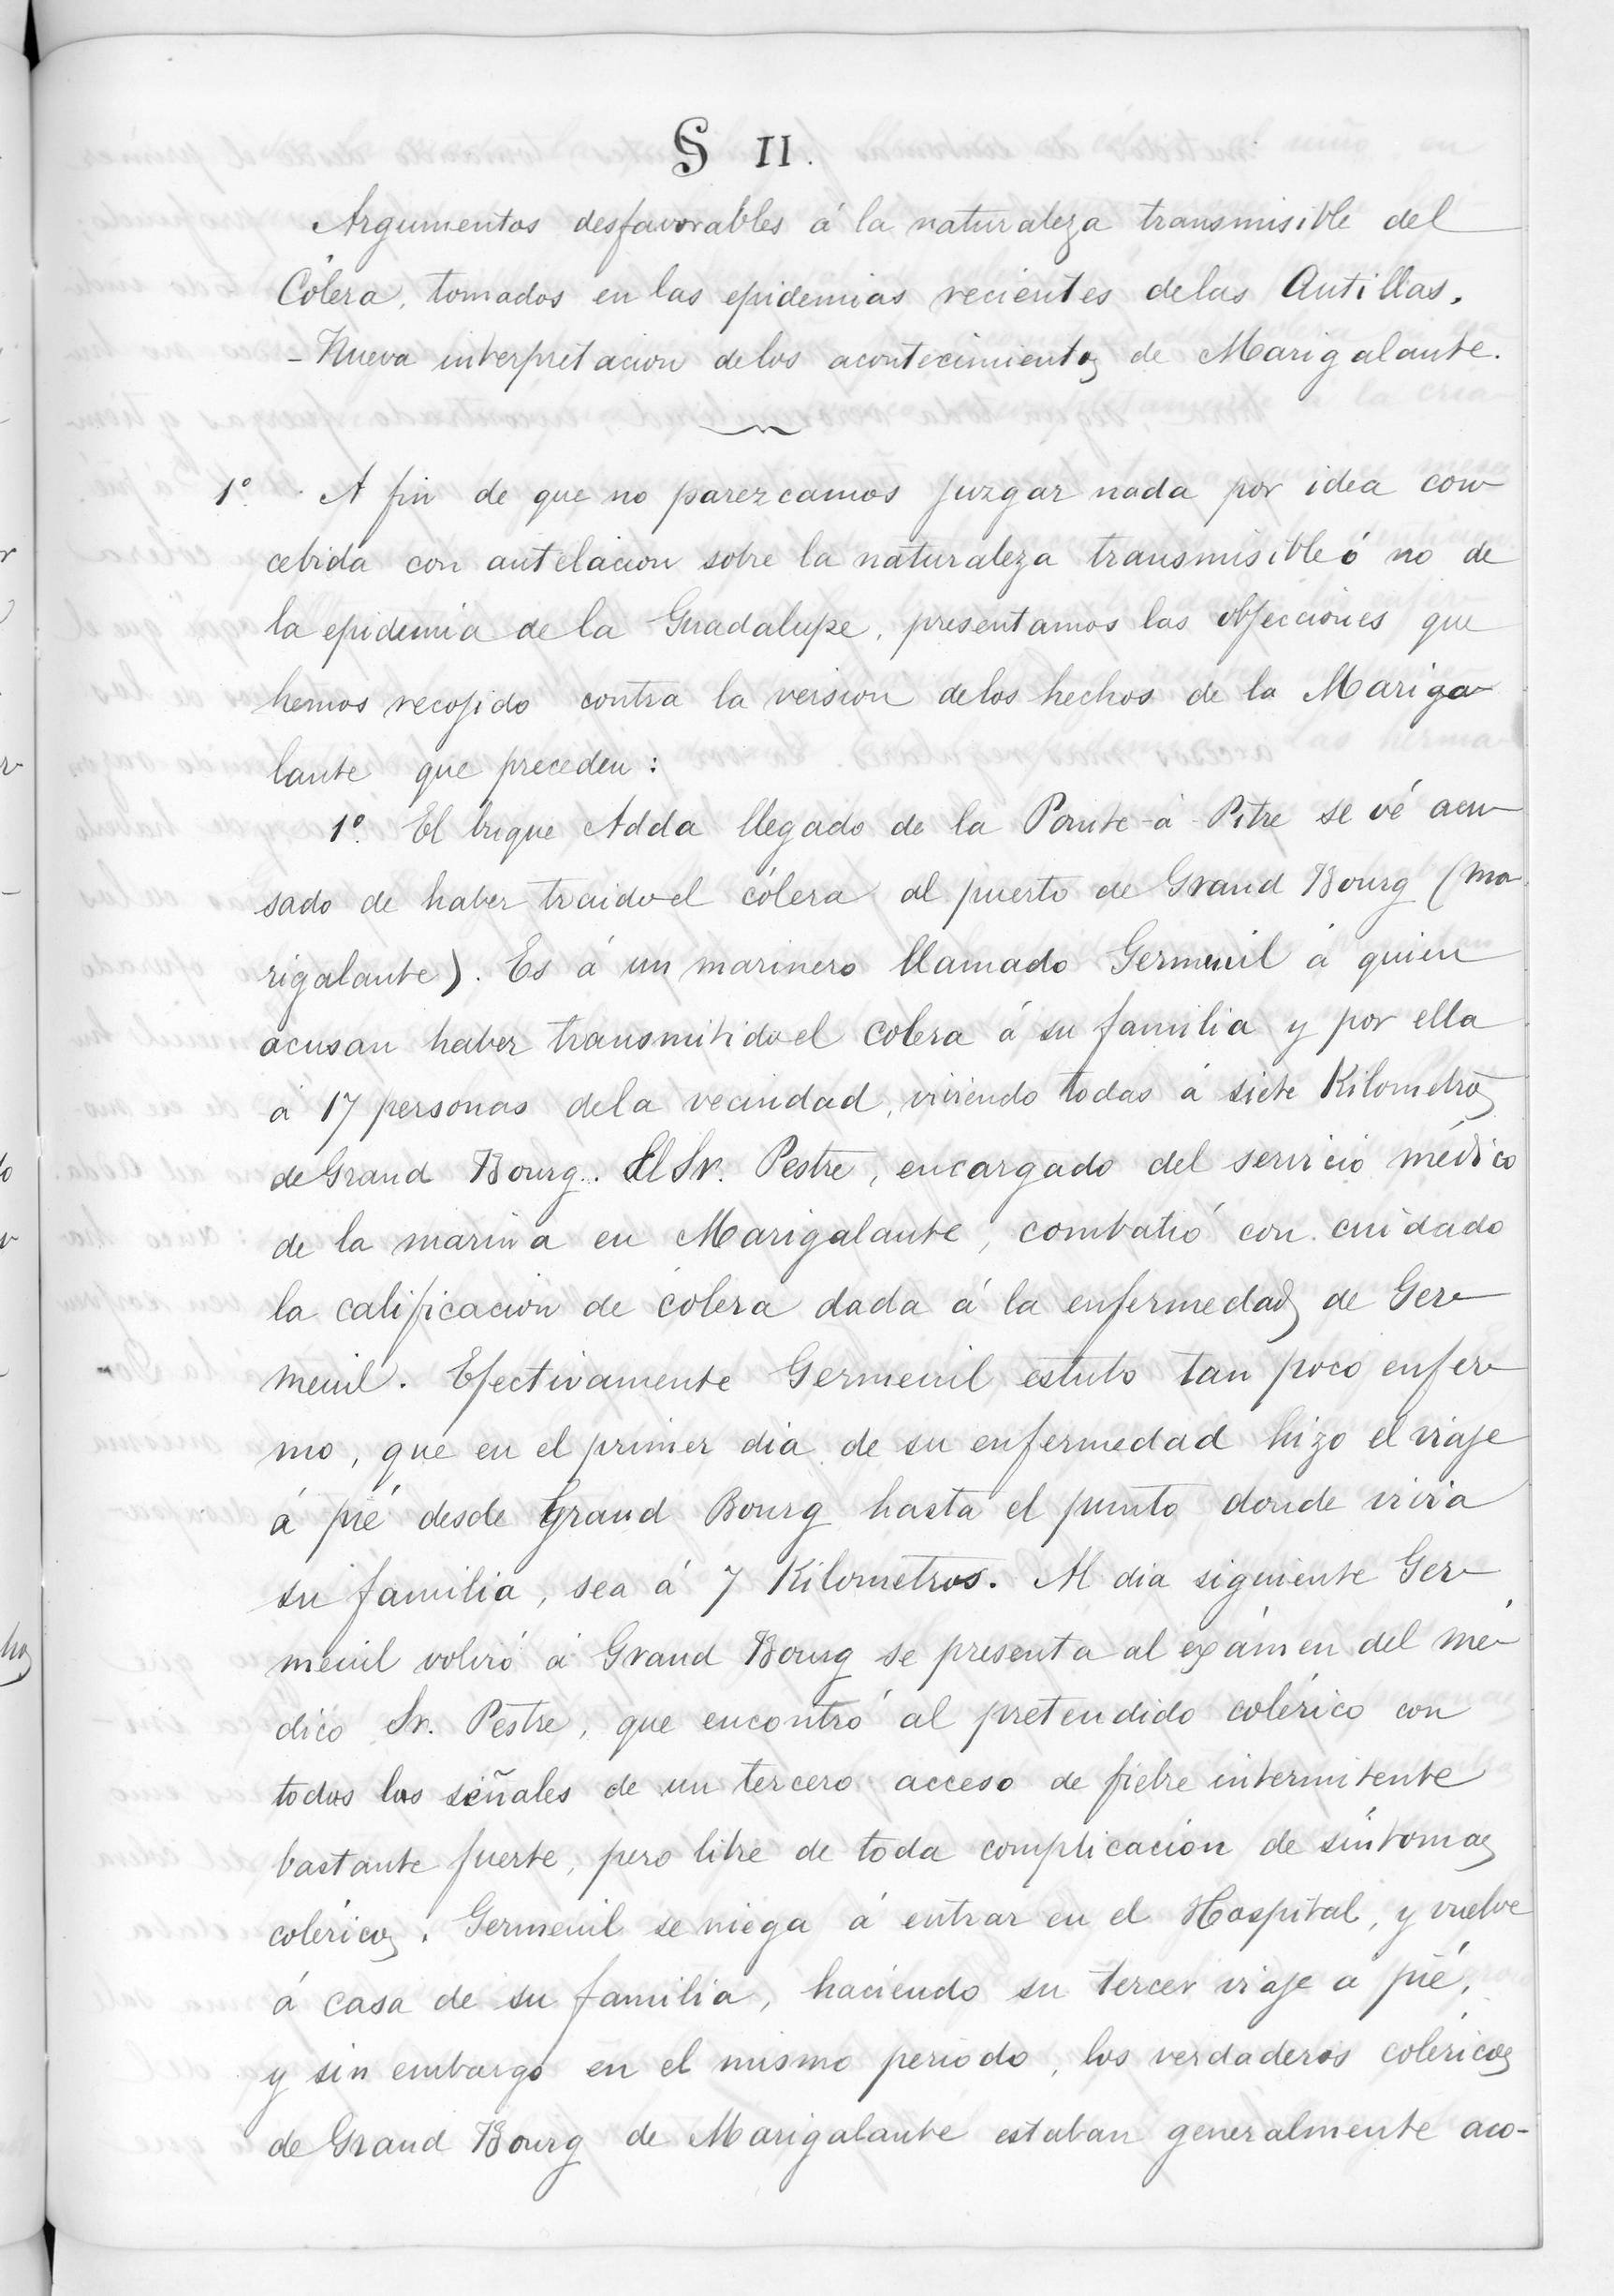 § II.
Argumentos desfavorables á la naturaleza transmisible del
Cólera, tomados en las epidemias recientes de las Antillas.
- Nueva interpretacion de los acontecimientos de Marigalante.
1º. A fin de que no parezcamos juzgar nada por idea con
cebida con antelacion sobre la naturaleza transmisible ó no de
la epidemia de la Guadalupe, presentamos las objecciones que
hemos recojido contra la version de los hechos de la Mariga-
lante que preceden:
1º. El brique Adda llegado de la Pointe-à-Pitre se vé acu-
sado de haber traido el cólera al puerto de Grand Bourg (Ma-
rigalante). Es á un marinero llamado Germeuil á quien
acusan haber transmitido el cólera á su familia y por ella
á 17 personas de la vecindad, viviendo todas á siete Kilometros
de Grand Bourg. El Sr. Pestre, encargado del servicio médico
de la marina en Marigalante, combatió con cuidado
la calificacion de cólera dada á la enfermedad de Ger-
meuil. Efectivamente Germeuil estubo tan poco enfer-
mo, que en el primer dia de su enfermedad hizo el viaje
á pié desde Grand Bourg hasta el punto donde vivia
su familia, sea á 7 Kilometros. Al dia siguiente Ger-
meuil volvió á Grand Bourg se presenta al exámen del mé-
dico Sr. Pestre, que encontró al pretendido colérico con
todas las señales de un tercero acceso de fiebre intermitente
bastante fuerte, pero libre de toda complicacion de síntomas
coléricos. Germeuil se niega á entrar en el Hospital, y vuelve
á casa de su familia, haciendo su tercer viaje a pié,
y sin embargo en el mismo periodo, los verdaderos coléricos
de Grand Bourg de Marigalante estaban generalmente aco-